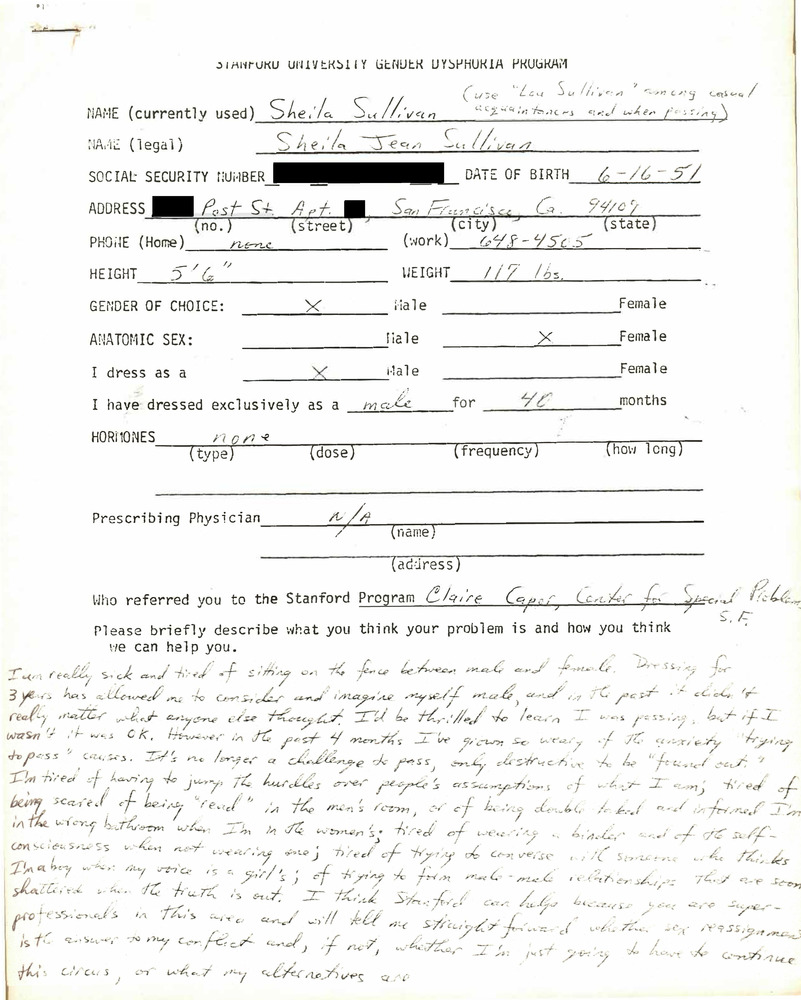 STANFORD UNIVERSITY GENDER DYSPHORIA PROGRAM
(use "Lou Sullivan" among casual
acquaintances and when passing)
NAME (currently used) Sheila Sullivan
NAME (legal) Sheila Jean Sullivan
SOCIAL SECURITY NUMBER DATE OF BIRTH 6-16-51
ADDRESS Post St. Apt. , San Francisco, Ca. 94109
(no.) (street) (city) (state)
PHONE (Home) none (work) 648-4505
HEIGHT 5'6" WEIGHT 117 lbs.
GENDER OF CHOICE: X Male Female
ANATOMIC SEX: Male X Female
I dress as a X Male Female
I have dressed exclusively as a male for 40 months
HORMONES none
(type) (dose) (frequency) (how long)
Prescribing Physician N/A
(name)
(address)
Who referred you to the Stanford Program Claire Capor, Center for Special Problems
S.F.
Please briefly describe what you think your problem is and how you think
we can help you.
I am really sick and tired of sitting on the fence between male and female. Dressing for
3 years has allowed me to consider and imagine myself male, and in the past it didn't
really matter what anyone else thought. I'd be thrilled to learn I was passing, but if I
wasn't it was OK. However in the past 4 months I've grown so weary of the anxiety "trying
to pass" causes. It's no longer a challenge to pass, only destructive to be "found out."
I'm tired of having to jump the hurdles over people's assumptions of what I am; tired of
being scared of being "read" in the men's room, or of being double taked and informed I'm
in the wrong bathroom when I'm in the women's; tired of wearing a binder and of the self-
consciousness when not wearing one; tired of trying to converse with someone who thinks
I'm a boy when my voice is a girl's; of trying to form male-male relationships that are soon
shattered when the truth is out. I think Stanford can help because you are super-
professionals in this area and will tell me straight forward whether sex reassignment
is the answer to my conflict and, if not, whether I'm just going to have to continue
this circus, or what my alternatives are